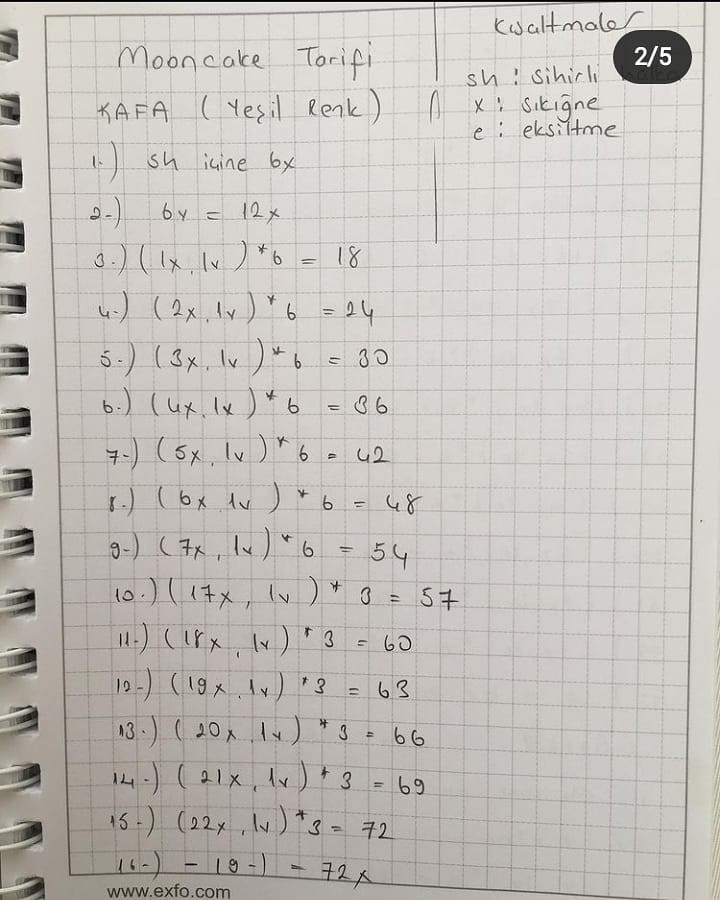 Mooncake Tarifi
KAFA (Yeşil Renk)
1.) sh içine 6x
2-) 6v = 12x
3.) (1x, 1v) * 6 = 18
4-) (2x, 1v) * 6 = 24
5-) (3x, 1v) * 6 = 30
6.) (4x, 1x) * 6 = 36
7-) (5x, 1v) * 6 = 42
8.) (6x 1v) * 6 = 48
9-) (7x, 1v) * 6 = 54
10.) (17x, 1v) * 3 = 57
11-) (18x, 1v) * 3 = 60
12-) (19x, 1v) * 3 = 63
13.) (20x, 1v) * 3 = 66
14-) (21x, 1v) * 3 = 69
15-) (22x, 1v) * 3 = 72
16-) - 19-) = 72x
Kısaltmalar
2/5
sh : sihirli
x : sıkiğne
e : eksiltme
www.exfo.com